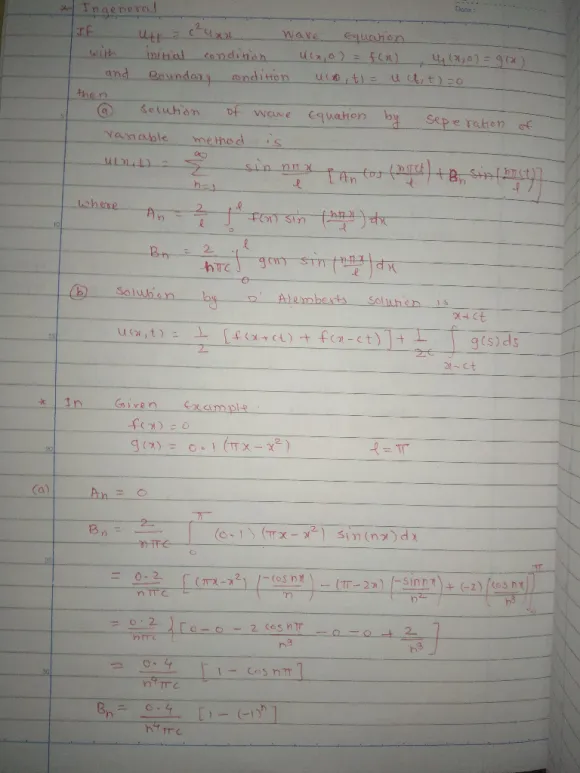 * Ingeneral
IF utt = c²uxx wave equation
with initial condition u(x,0) = f(x) , ut(x,0) = g(x)
and Boundary condition u(0,t) = u(l,t) = 0
then
(a) Solution of wave equation by seperation of
variable method is
u(x,t) = ∞∑n=1 sin nπx/l [An cos (nπct/l) + Bn sin (nπct/l)]
where An = 2/l ∫₀^l f(x) sin (nπx/l) dx
Bn = 2/nπc ∫₀^l g(x) sin (nπx/l) dx
(b) Solution by D' Alemberts solution is
u(x,t) = 1/2 [f(x+ct) + f(x-ct)] + 1/2c ∫_{x-ct}^{x+ct} g(s)ds
* In Given example.
f(x) = 0
g(x) = 0.1 (πx - x²) l = π
(a) An = 0
Bn = 2/nπc ∫₀^π (0.1) (πx - x²) sin(nx) dx
= 0.2/nπc [(πx-x²) (-cosnx/n) - (π-2x) (-sinnx/n²) + (-2) (cosnx/n³)]₀^π
= 0.2/nπc {[0-0-2 cosnπ/n³ - 0-0 + 2/n³]
= 0.4/n⁴πc [1 - cosnπ]
Bn = 0.4/n⁴πc [1 - (-1)ⁿ]